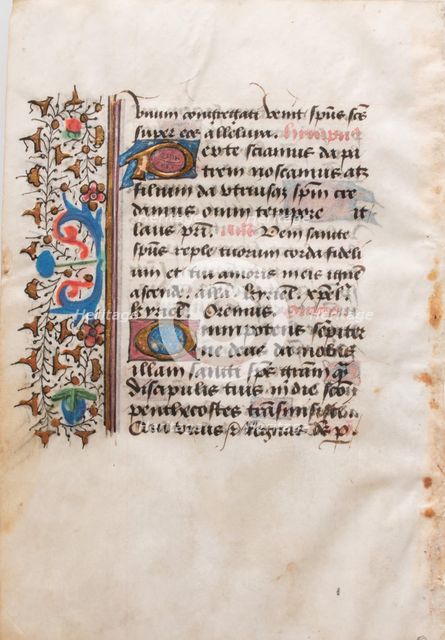 vnum congregati venit spūs scūs
super eos alleluya. himpnus
Per te sciamus da pa
trem noscamus atq
filium da vtriusq spm cre
damus omni tempore it
laus pri. Veni sancte
spūs reple tuorum corda fideli
um et tui amoris in eis ignem
ascende. Kyriel. xpel.
kyriel Oremus.
Omnipotens sempiter
ne deus da nobis
illam sancti sps gram qm
discipulis tuis in die scōrū
penthecostes transmisisti
Qui viuis et regnas de p.
Heritage